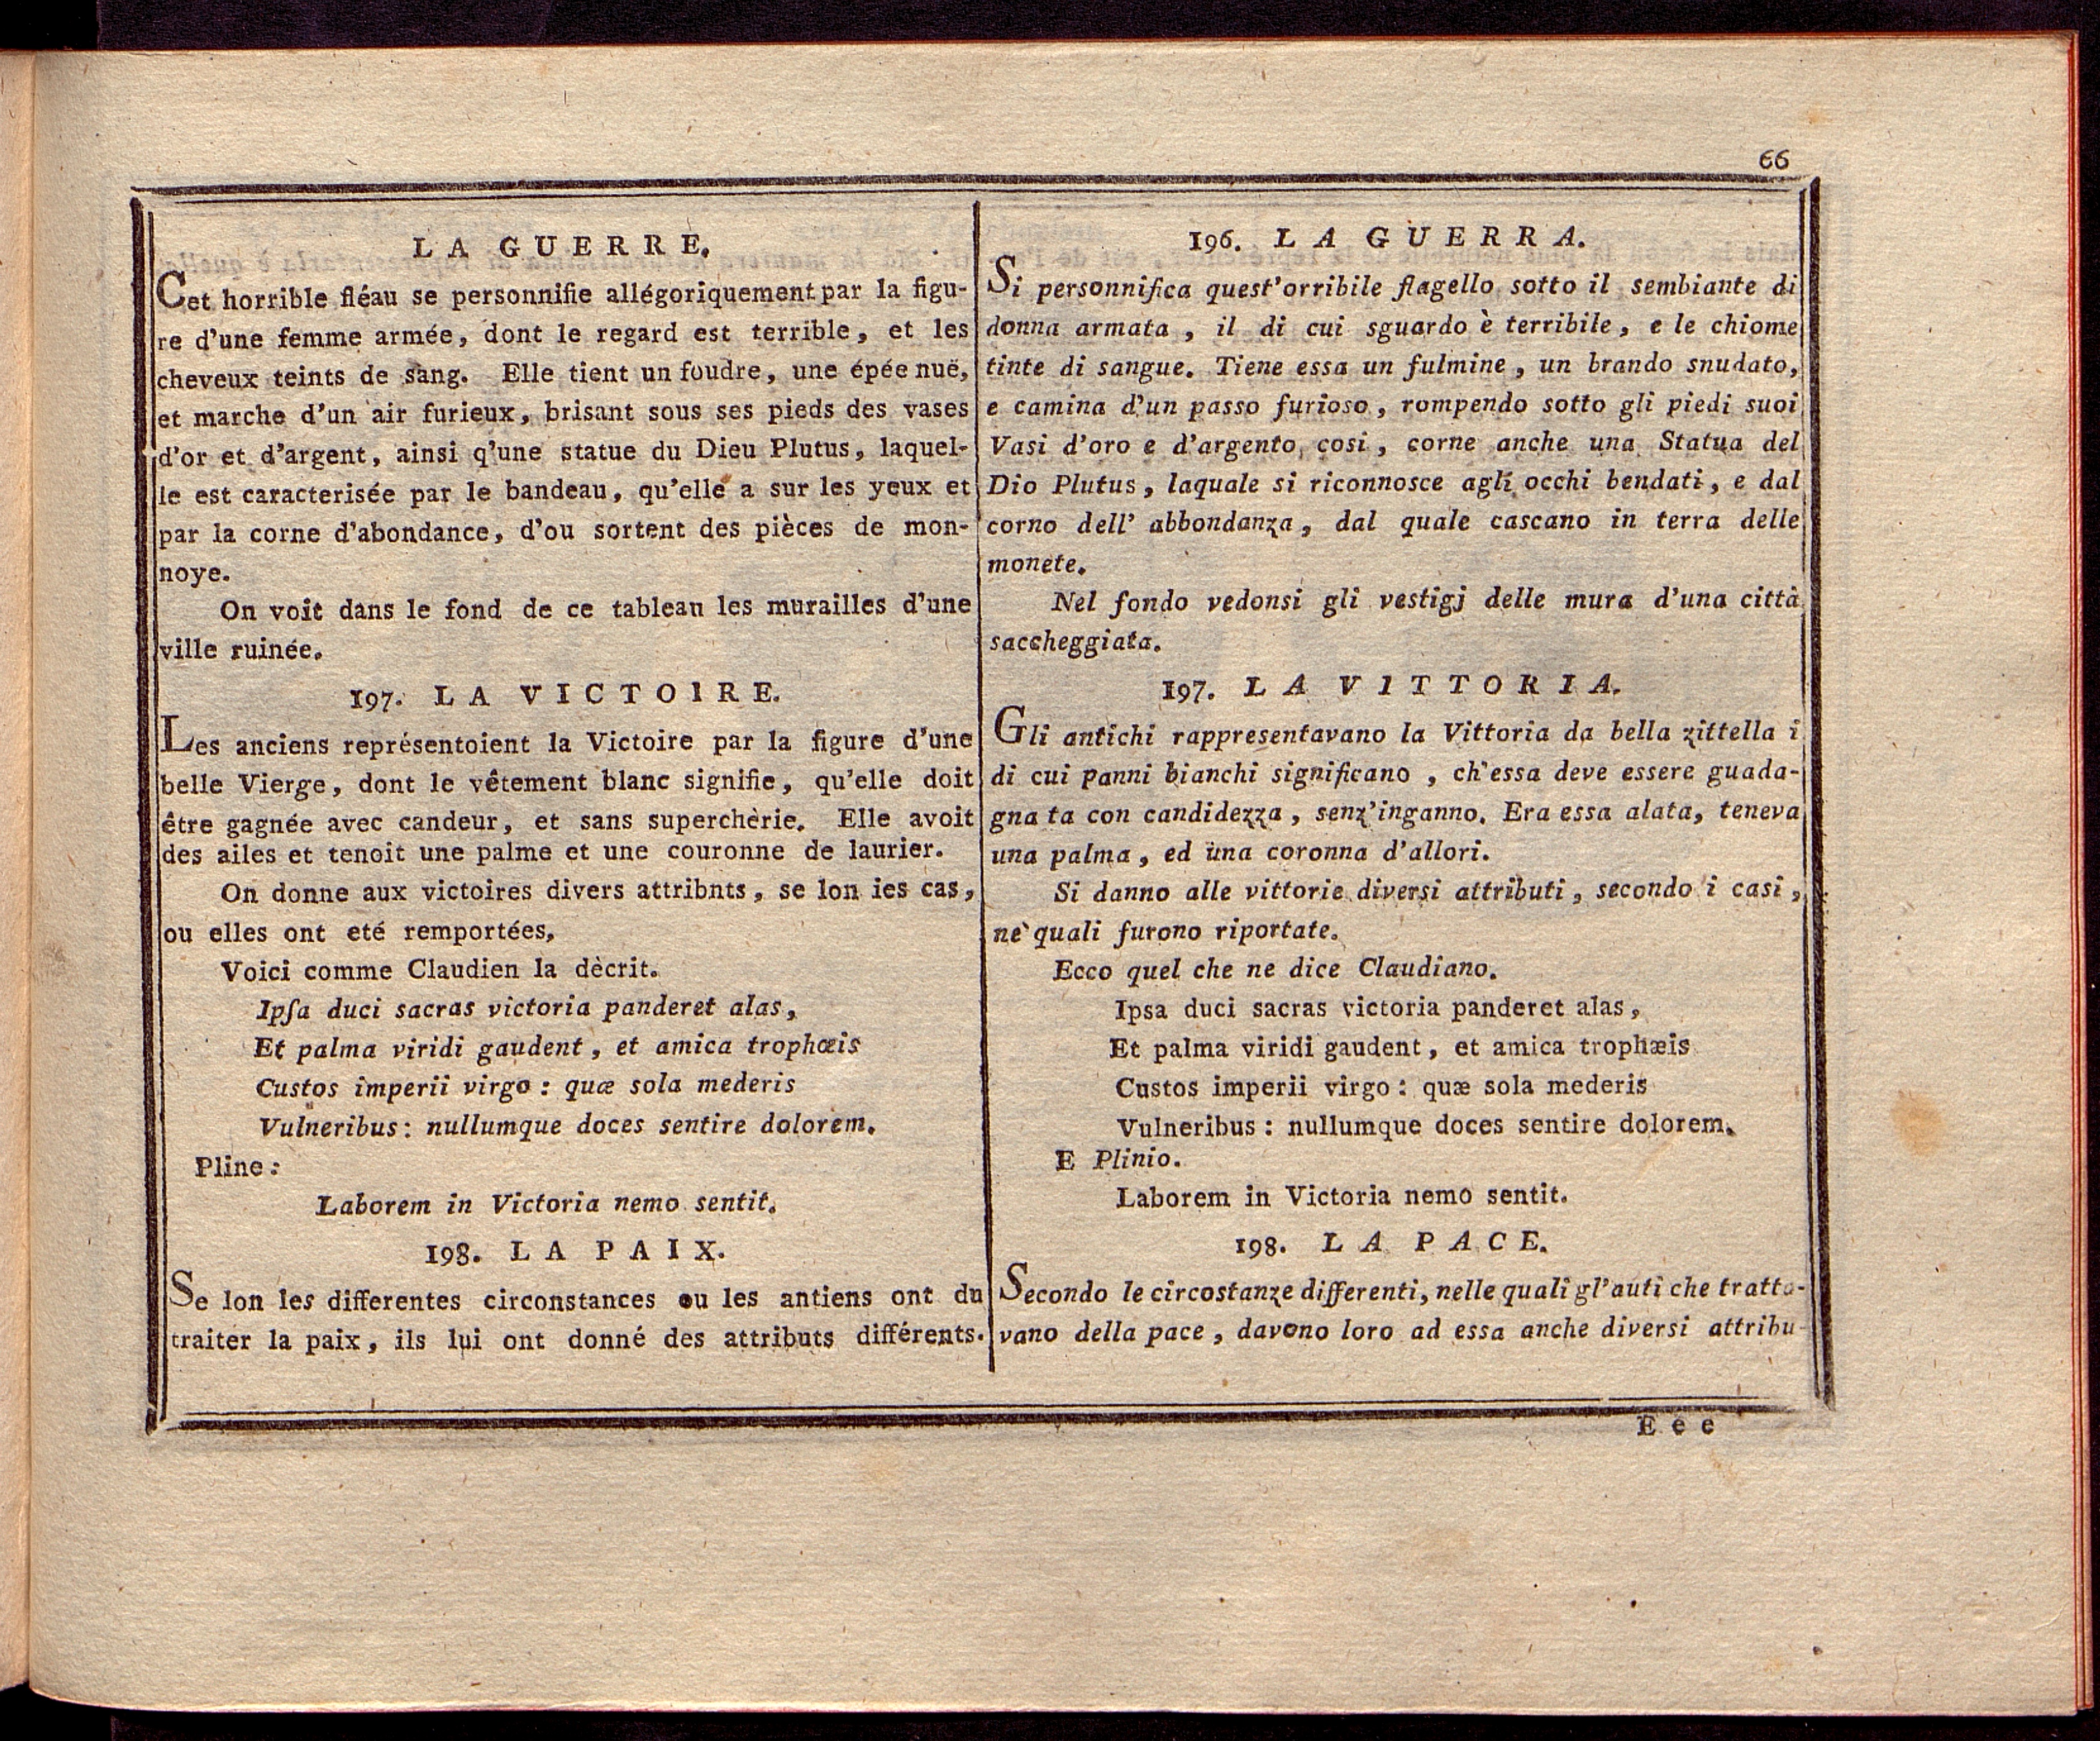 66
LA GUERRE.
Cet horrible fléau se personnifie allégoriquement par la figu-
re d'une femme armée, dont le regard est terrible, et les
cheveux teints de sang. Elle tient un foudre, une épée nuë,
et marche d'un air furieux, brisant sous ses pieds des vases
d'or et d'argent, ainsi q'une statue du Dieu Plutus, laquel-
le est caracterisée par le bandeau, qu'elle a sur les yeux et
par la corne d'abondance, d'ou sortent des pièces de mon-
noye.
On voit dans le fond de ce tableau les murailles d'une
ville ruinée.
197. LA VICTOIRE.
Les anciens représentoient la Victoire par la figure d'une
belle Vierge, dont le vêtement blanc signifie, qu'elle doit
être gagnée avec candeur, et sans superchèrie. Elle avoit
des ailes et tenoit une palme et une couronne de laurier.
On donne aux victoires divers attribnts, se lon ies cas,
ou elles ont eté remportées,
Voici comme Claudien la dècrit.
Ipſa duci sacras victoria panderet alas,
Et palma viridi gaudent, et amica trophœis
Custos imperii virgo: quæ sola mederis
Vulneribus: nullumque doces sentire dolorem.
Pline:
Laborem in Victoria nemo sentit.
198. LA PAIX.
Se lon les differentes circonstances ou les antiens ont du
traiter la paix, ils lui ont donné des attributs différents.
196. LA GUERRA.
Si personnifica quest'orribile flagello sotto il sembiante di
donna armata, il di cui sguardo è terribile, e le chiome
tinte di sangue. Tiene essa un fulmine, un brando snudato,
e camina d'un passo furioso, rompendo sotto gli piedi suoi
Vasi d'oro e d'argento, cosi, corne anche una Statua del
Dio Plutus, laquale si riconnosce agli occhi bendati, e dal
corno dell' abbondanza, dal quale cascano in terra delle
monete.
Nel fondo vedonsi gli vestigj delle mura d'una città
saccheggiata.
197. LA VITTORIA.
Gli antichi rappresentavano la Vittoria da bella zittella i
di cui panni bianchi significano, ch'essa deve essere guada-
gna ta con candidezza, senz'inganno. Era essa alata, teneva
una palma, ed una coronna d'allori.
Si danno alle vittorie diversi attributi, secondo i casi,
ne' quali furono riportate.
Ecco quel che ne dice Claudiano.
Ipsa duci sacras victoria panderet alas,
Et palma viridi gaudent, et amica trophæis
Custos imperii virgo: quæ sola mederis
Vulneribus: nullumque doces sentire dolorem.
E Plinio.
Laborem in Victoria nemo sentit.
198. LA PACE.
Secondo le circostanze differenti, nelle quali gl'auti che tratta-
vano della pace, davono loro ad essa anche diversi attribu-
Eee